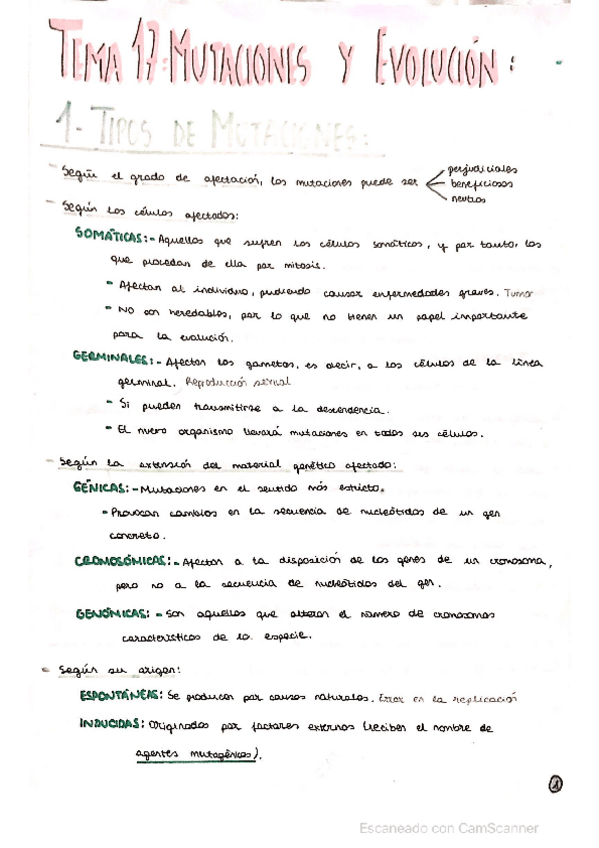 TEMA 17: MUTACIONES Y EVOLUCIÓN:
1- TIPOS DE MUTACIONES:
- Según el grado de afectación, las mutaciones puede ser
perjudiciales
beneficiosas
neutras
- Según las células afectadas:
SOMÁTICAS: - Aquellas que sufren las células somáticas, y por tanto, las
que procedan de ella por mitosis.
- Afectan al individuo, pudiendo causar enfermedades graves. Tumor
- NO son heredables, por lo que no tienen un papel importante
para la evolución.
GERMINALES: - Afectan los gametos, es decir, a las células de la línea
germinal. Reproducción sexual
- Si pueden transmitirse a la descendencia.
- El nuevo organismo llevará mutaciones en todas sus células.
- Según la extensión del material genético afectado:
GÉNICAS: - Mutaciones en el sentido más estricto.
- Provocan cambios en la secuencia de nucleótidos de un gen
concreto.
CROMOSÓMICAS: - Afectan a la disposición de los genes de un cromosoma,
pero no a la secuencia de nucleótidos del gen.
GENÓMICAS: - Son aquellas que alteran el número de cromosomas
característicos de la especie.
- Según su origen:
ESPONTÁNEAS: Se producen por causas naturales. Error en la replicación
INDUCIDAS: Originadas por factores externos (reciben el nombre de
agentes mutagénicos).
1
Escaneado con CamScanner